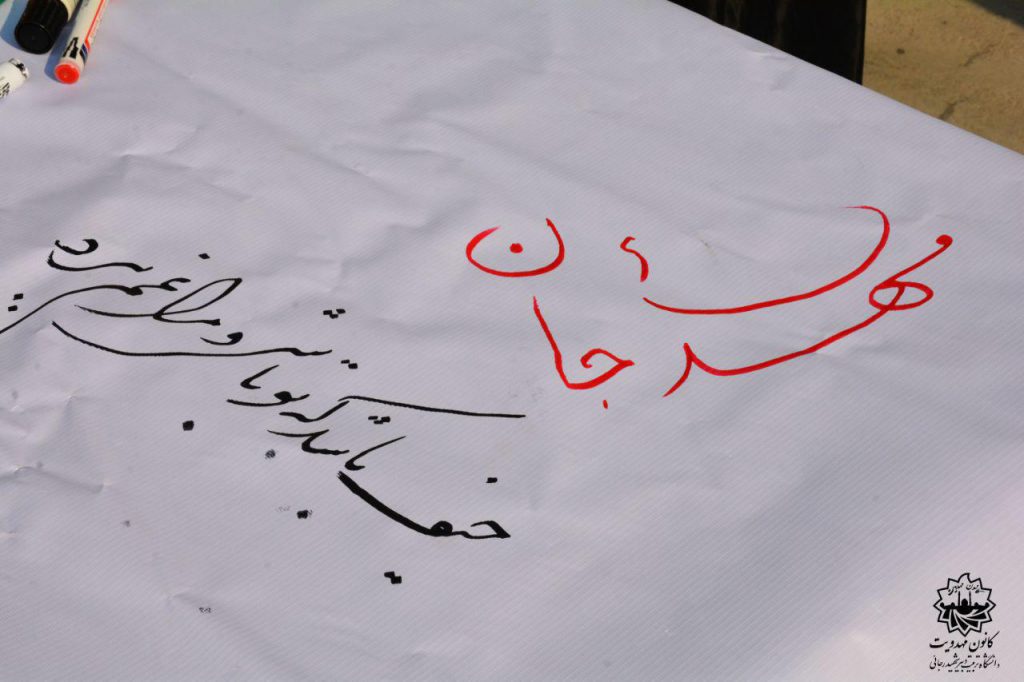 مهدی جان
حیف باشد که تو باشی و مرا غم ببرد
کانون مهدویت
دانشگاه تربیت دبیر شهید رجائی